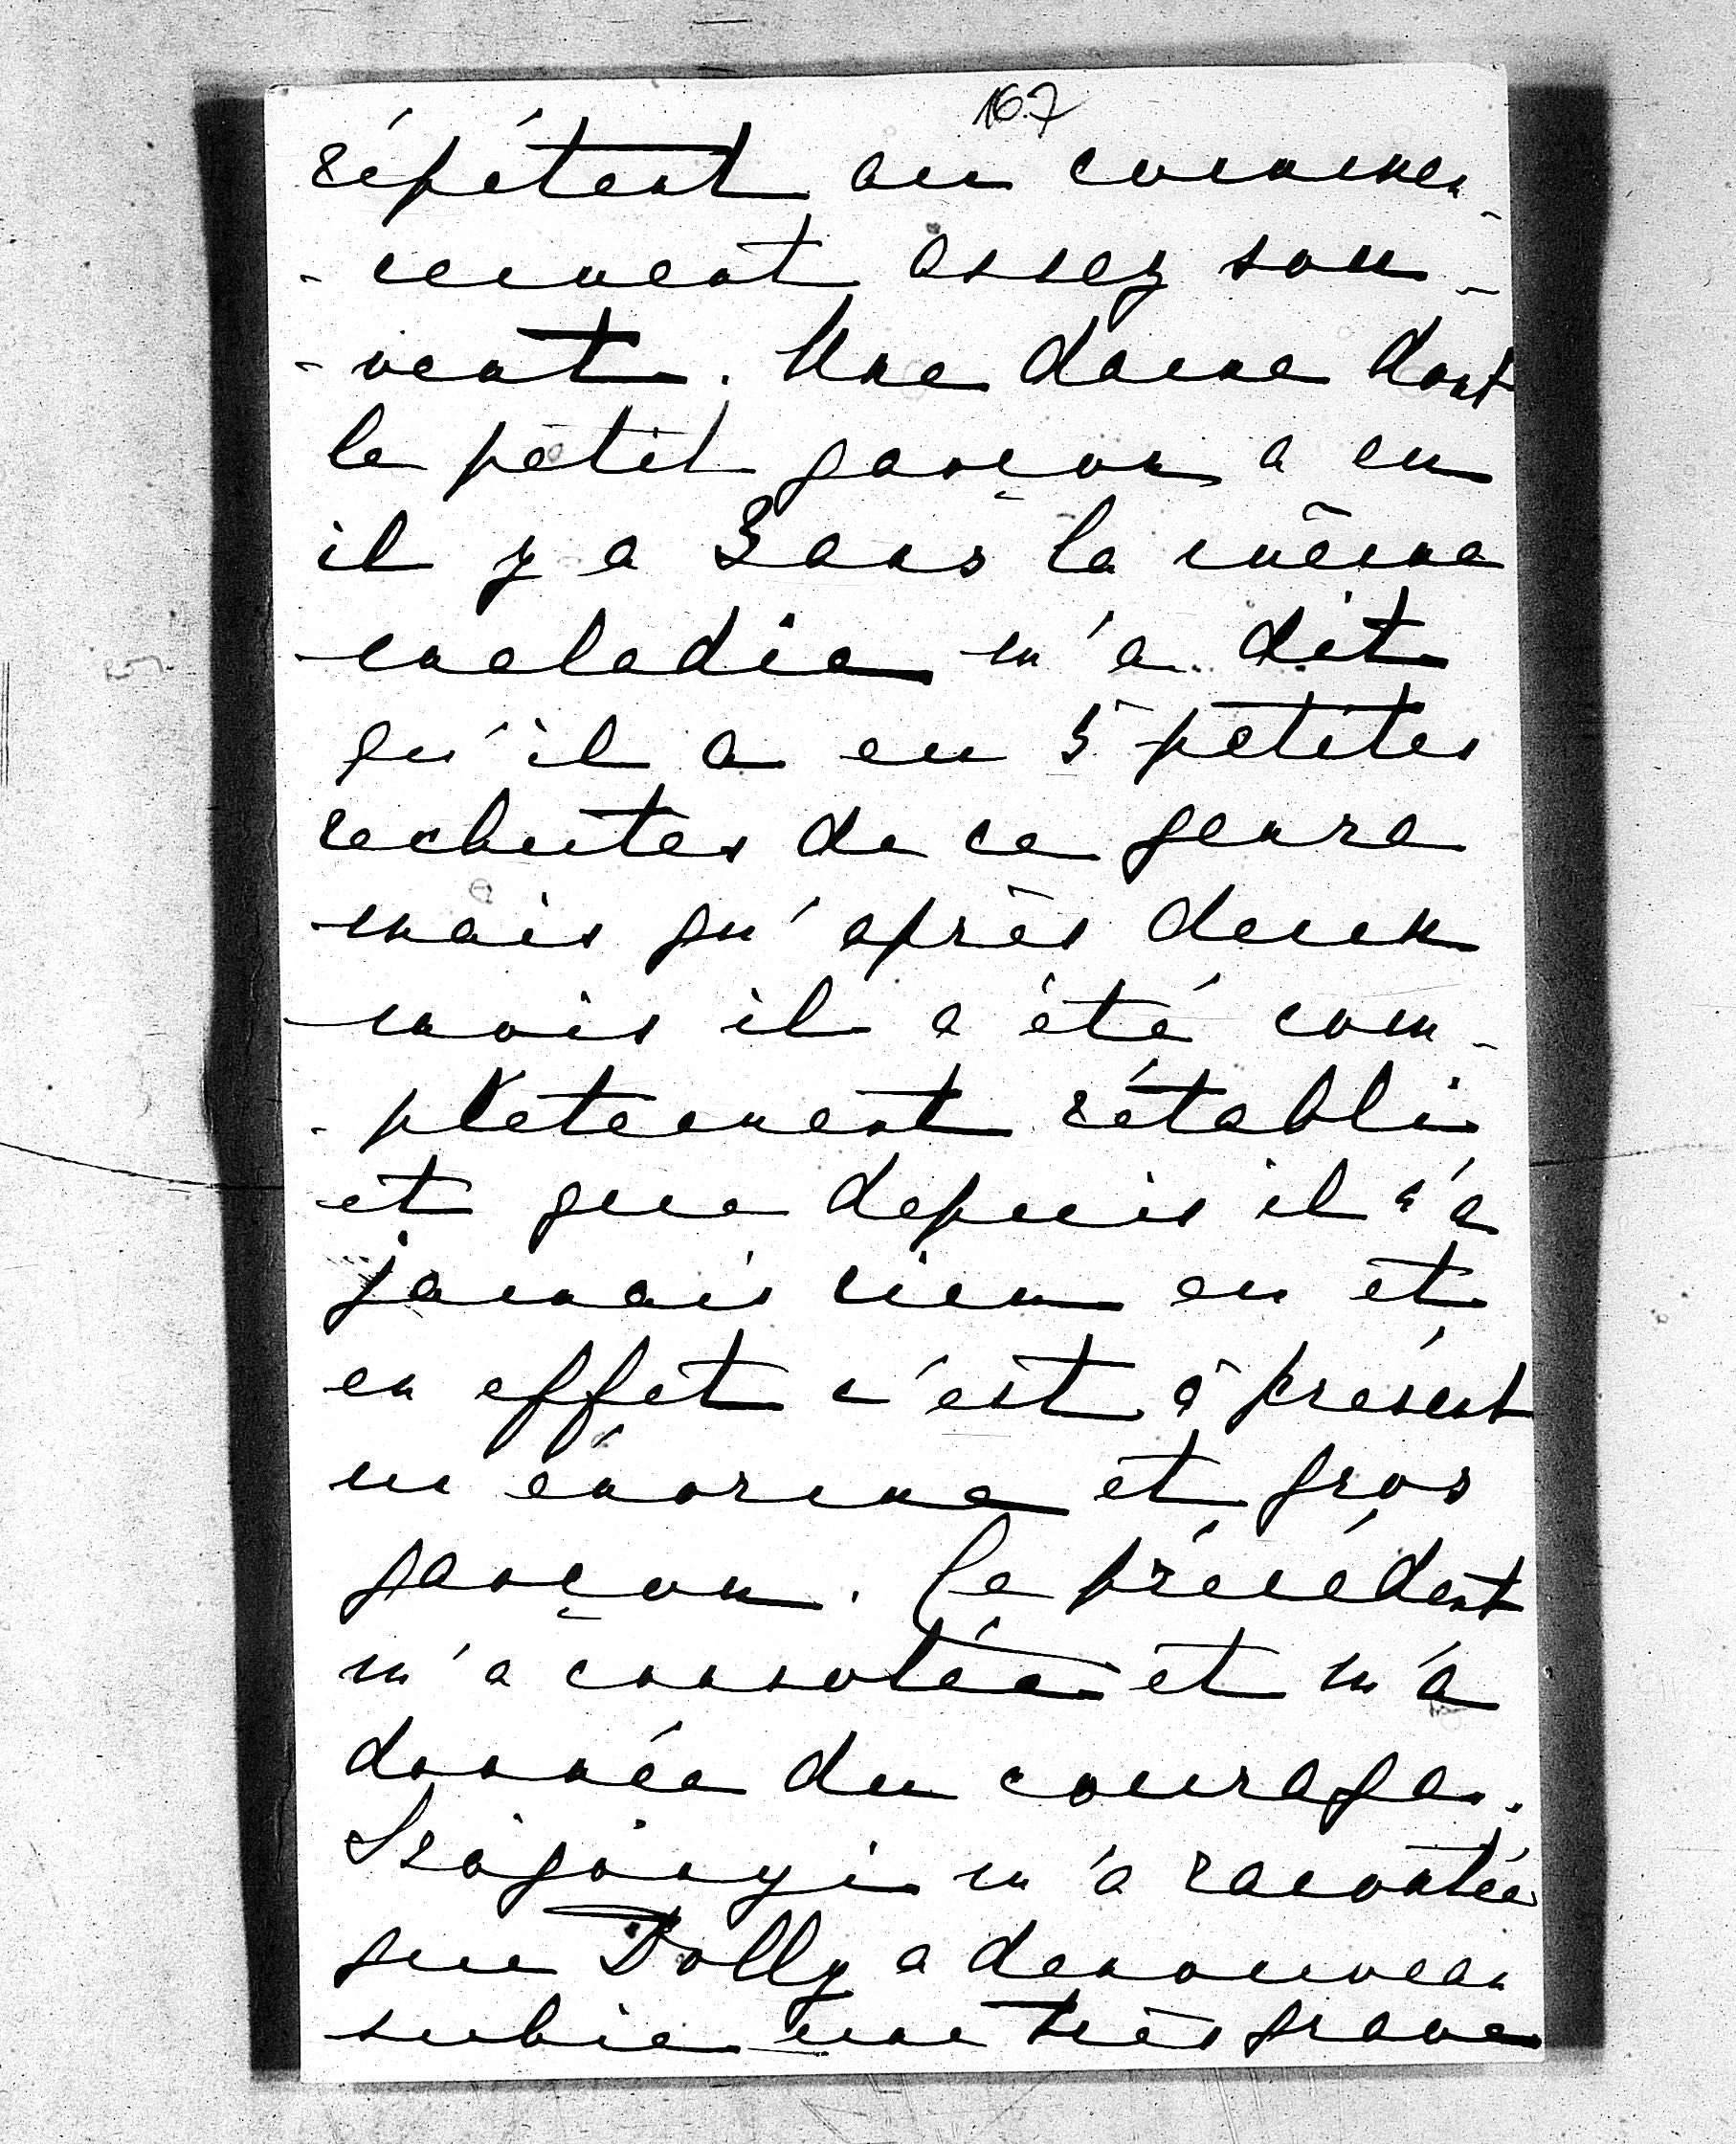 167
répétent au commen-
-cement assez sou-
-vent. Une dame dont
le petit garçon a eu
il y a 3 ans la même
maladie m'a dit
qu'il a eu 5 petites
rechutes de ce genre
mais qu'après deux
mois il a été com-
-pletement rétabli
et que depuis il n'a
jamais rien eu et
en effet c'est à présent
un énorme et gros
garçon. Ce précédent
m'a consolée et m'a
donnée du courage.
m'a racontée
que Dolly a denouveau
subie une très grave